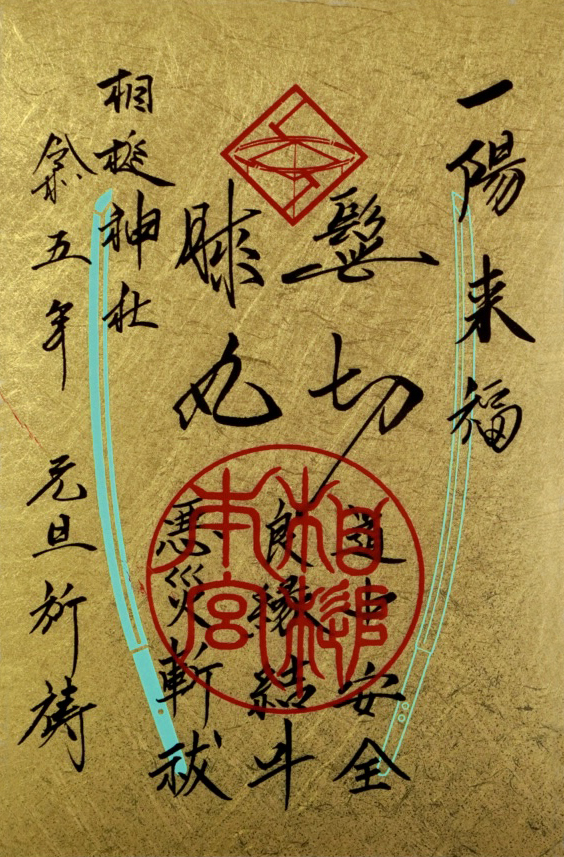 一陽来福
髭切
膝丸
道中安全
良縁結
悪災斬祓
相槌神社
令和五年 元旦祈祷
相槌本宮